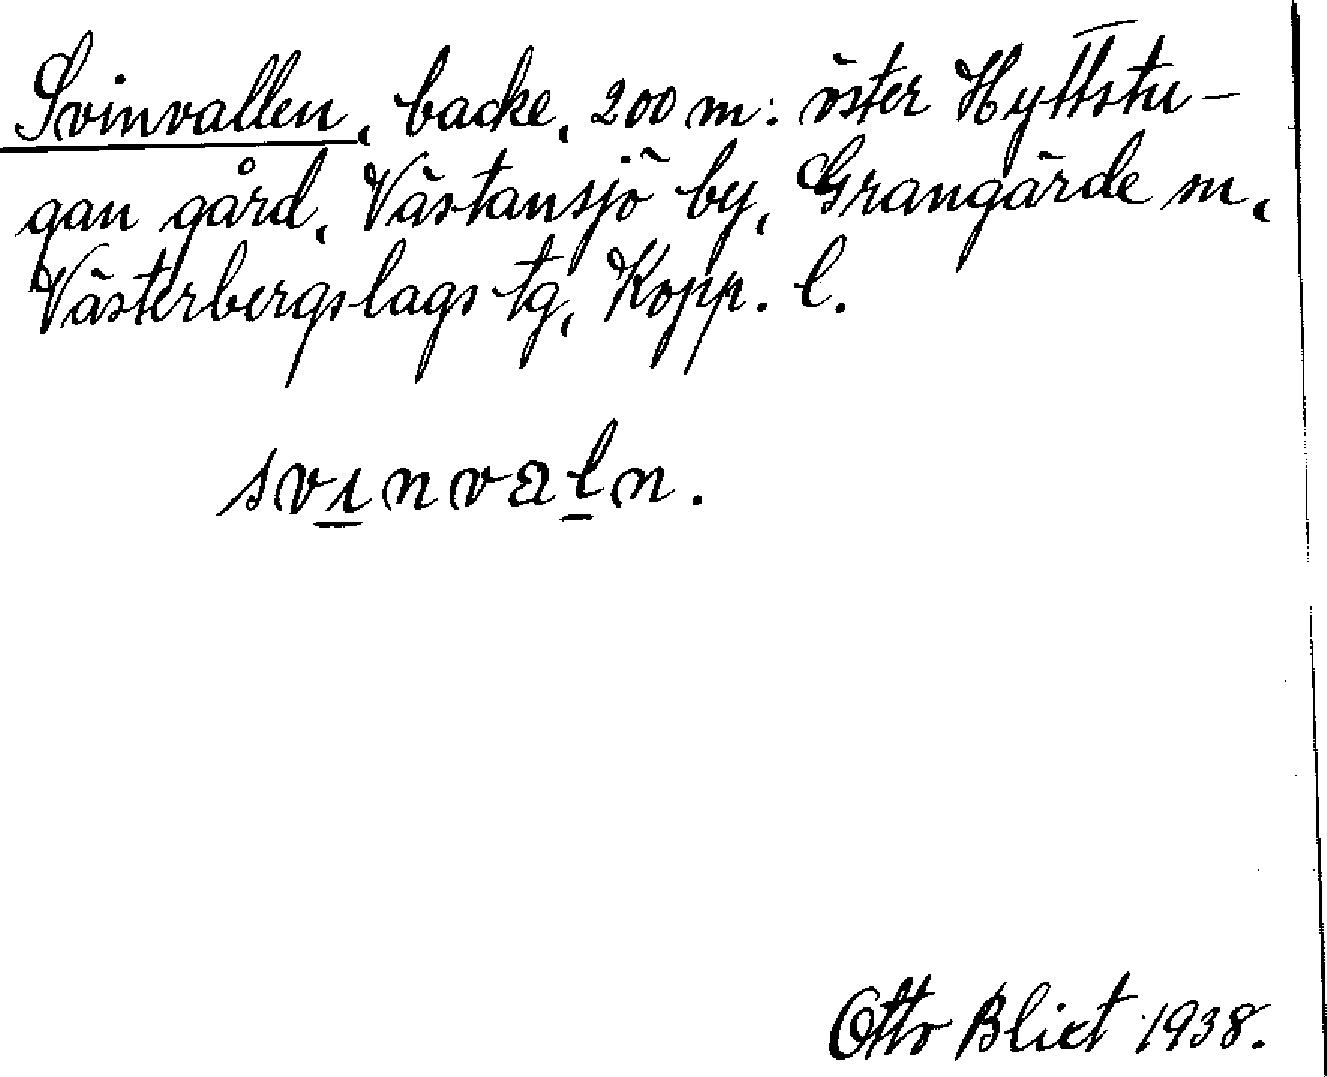 Svinvallen, backe, 200 m. öster Hyttstu-
gan gård, Västansjö by, Grangärde sn,
Västerbergslags tg, Kopp. l.
svınvaln.
Otto Blixt 1938.